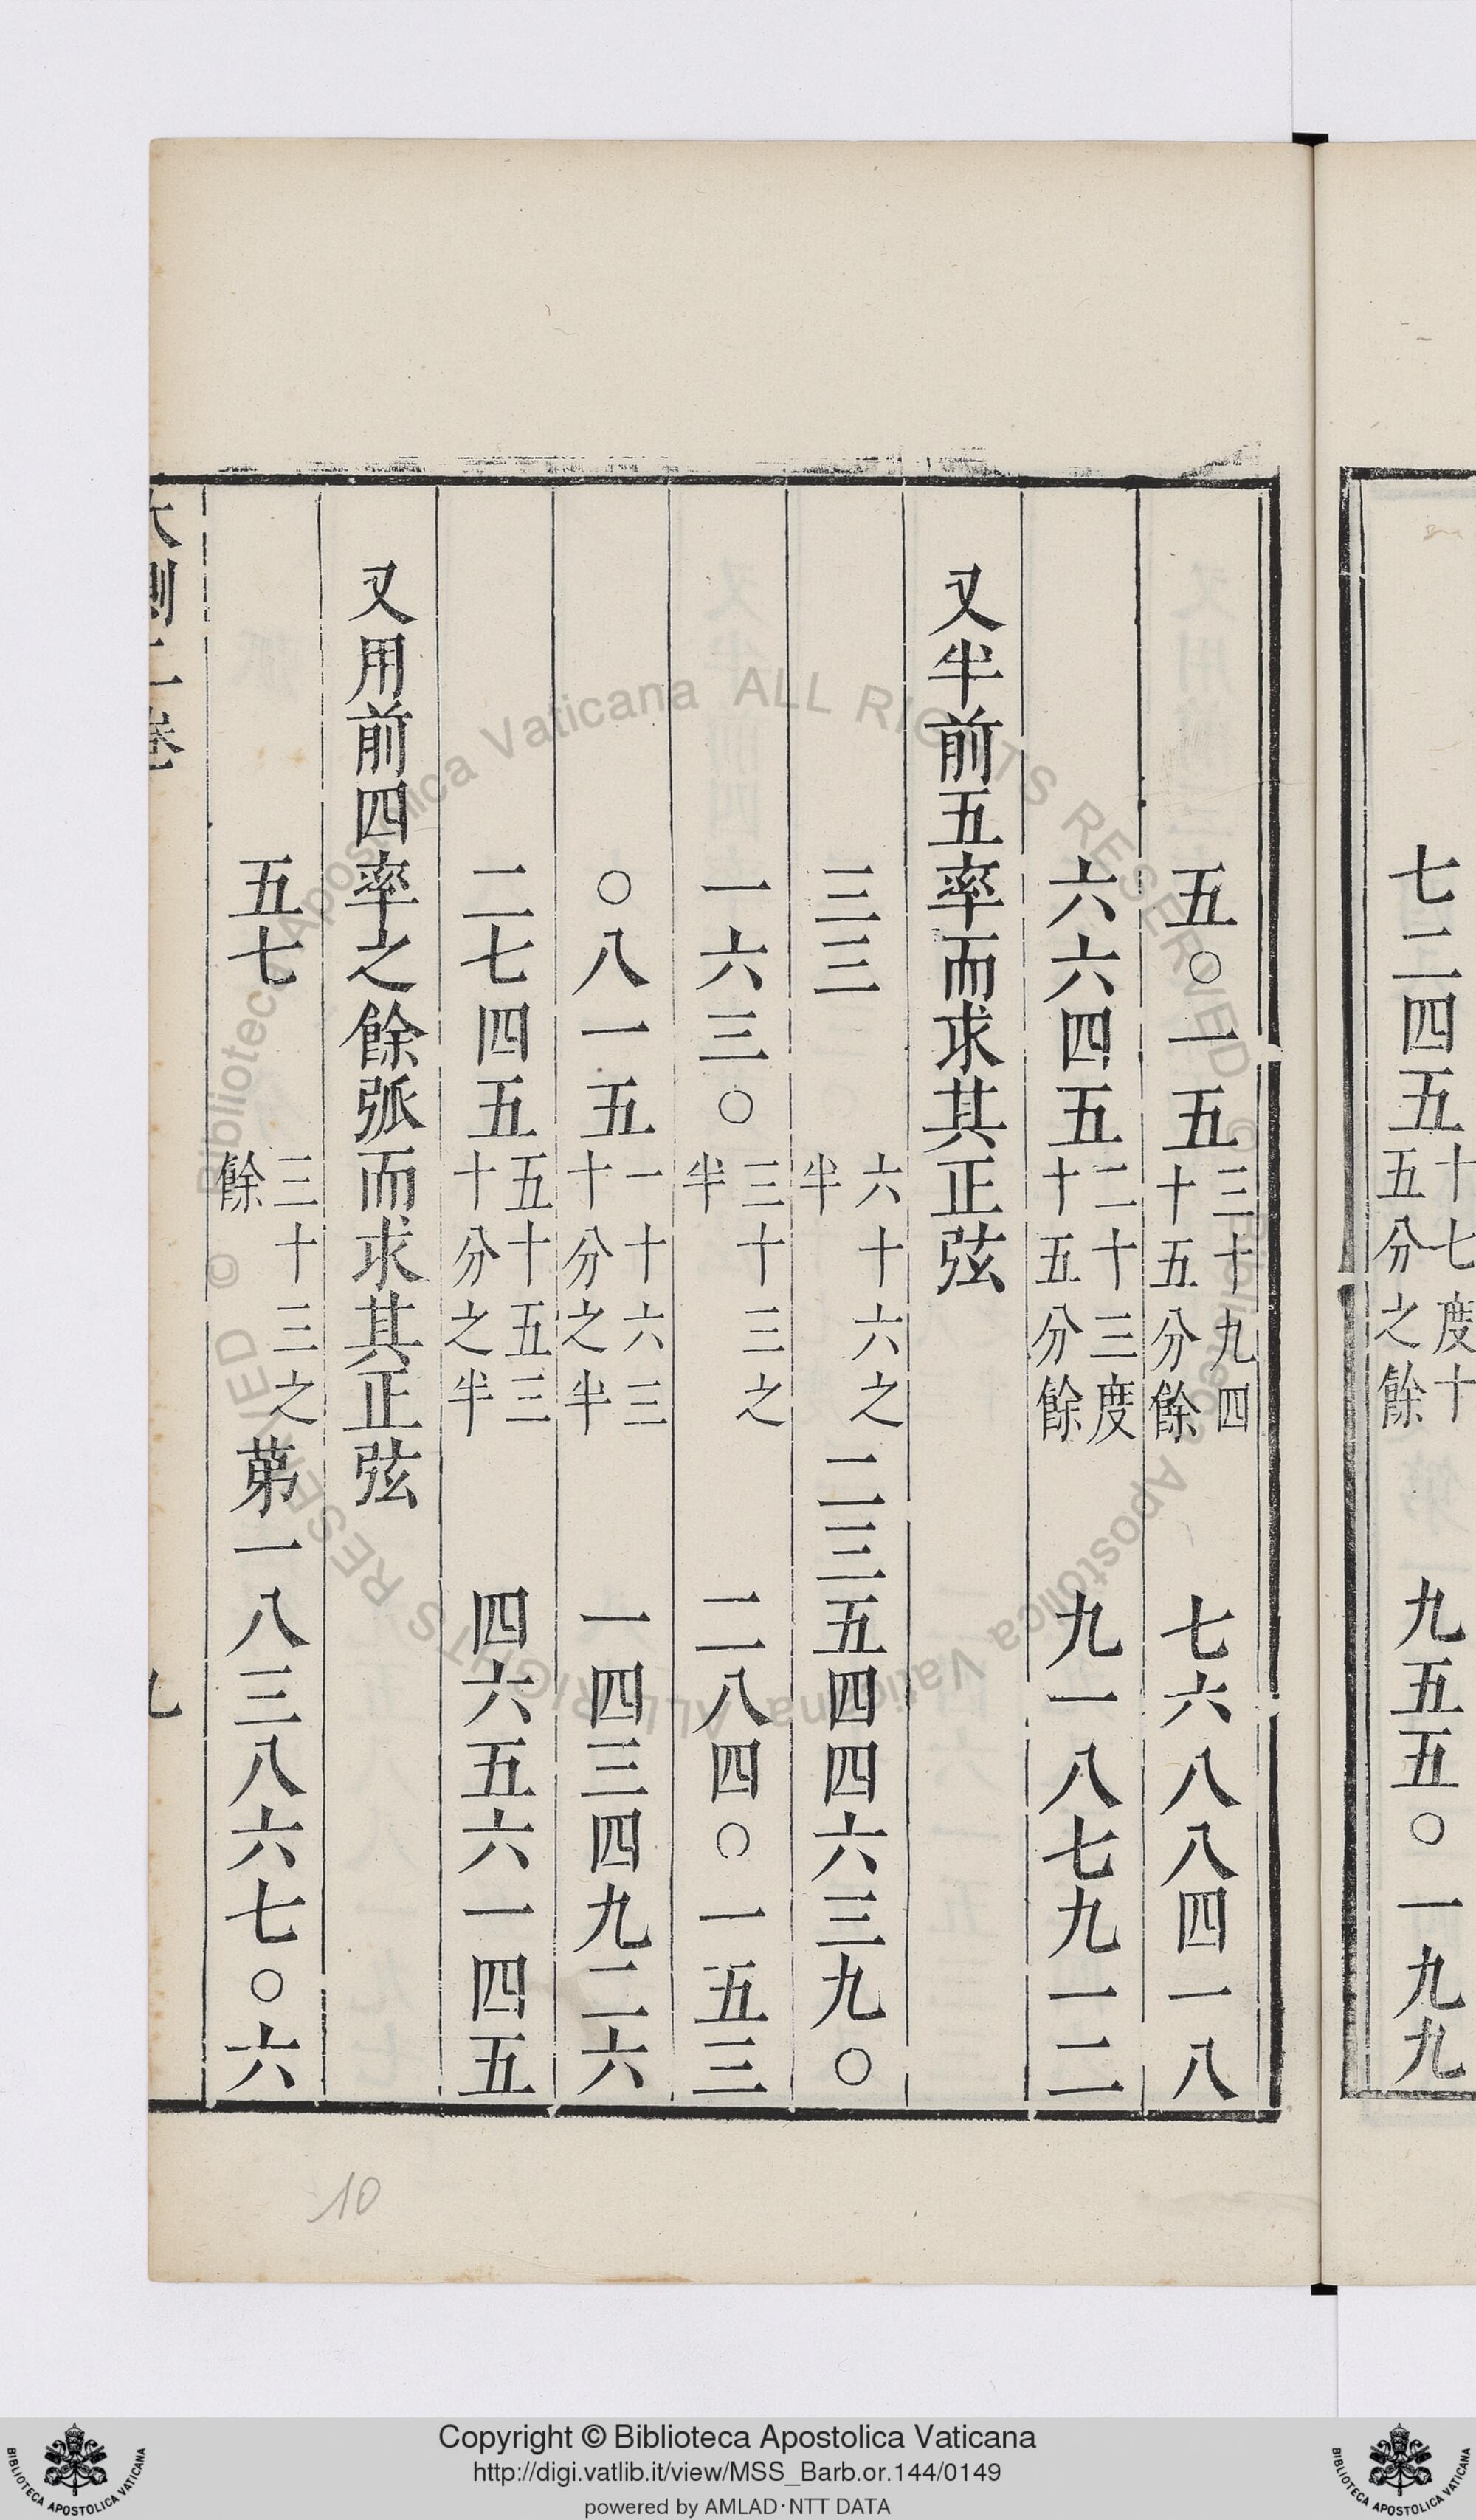 七二四五十七度十五分之餘　九五五〇一九九
五〇一五三十九四十五分餘　七六八八四一八
六六四五二十三度十五分餘　九一八七九一二
又半前五率而求其正弦
三三六十六之半二三五四四六三九〇
一六三〇三十三之半　二八四〇一五三
〇八一五一十六三十分之半　一四三四九二六
二七四五五十五三十分之半　四六五六一四五
又用前四率之餘弧而求其正弦
五七三十三之餘第一八三八六七〇六
10
Copyright © Biblioteca Apostolica Vaticana
http://digi.vatlib.it/view/MSS_Barb.or.144/0149
powered by AMLAD·NTT DATA